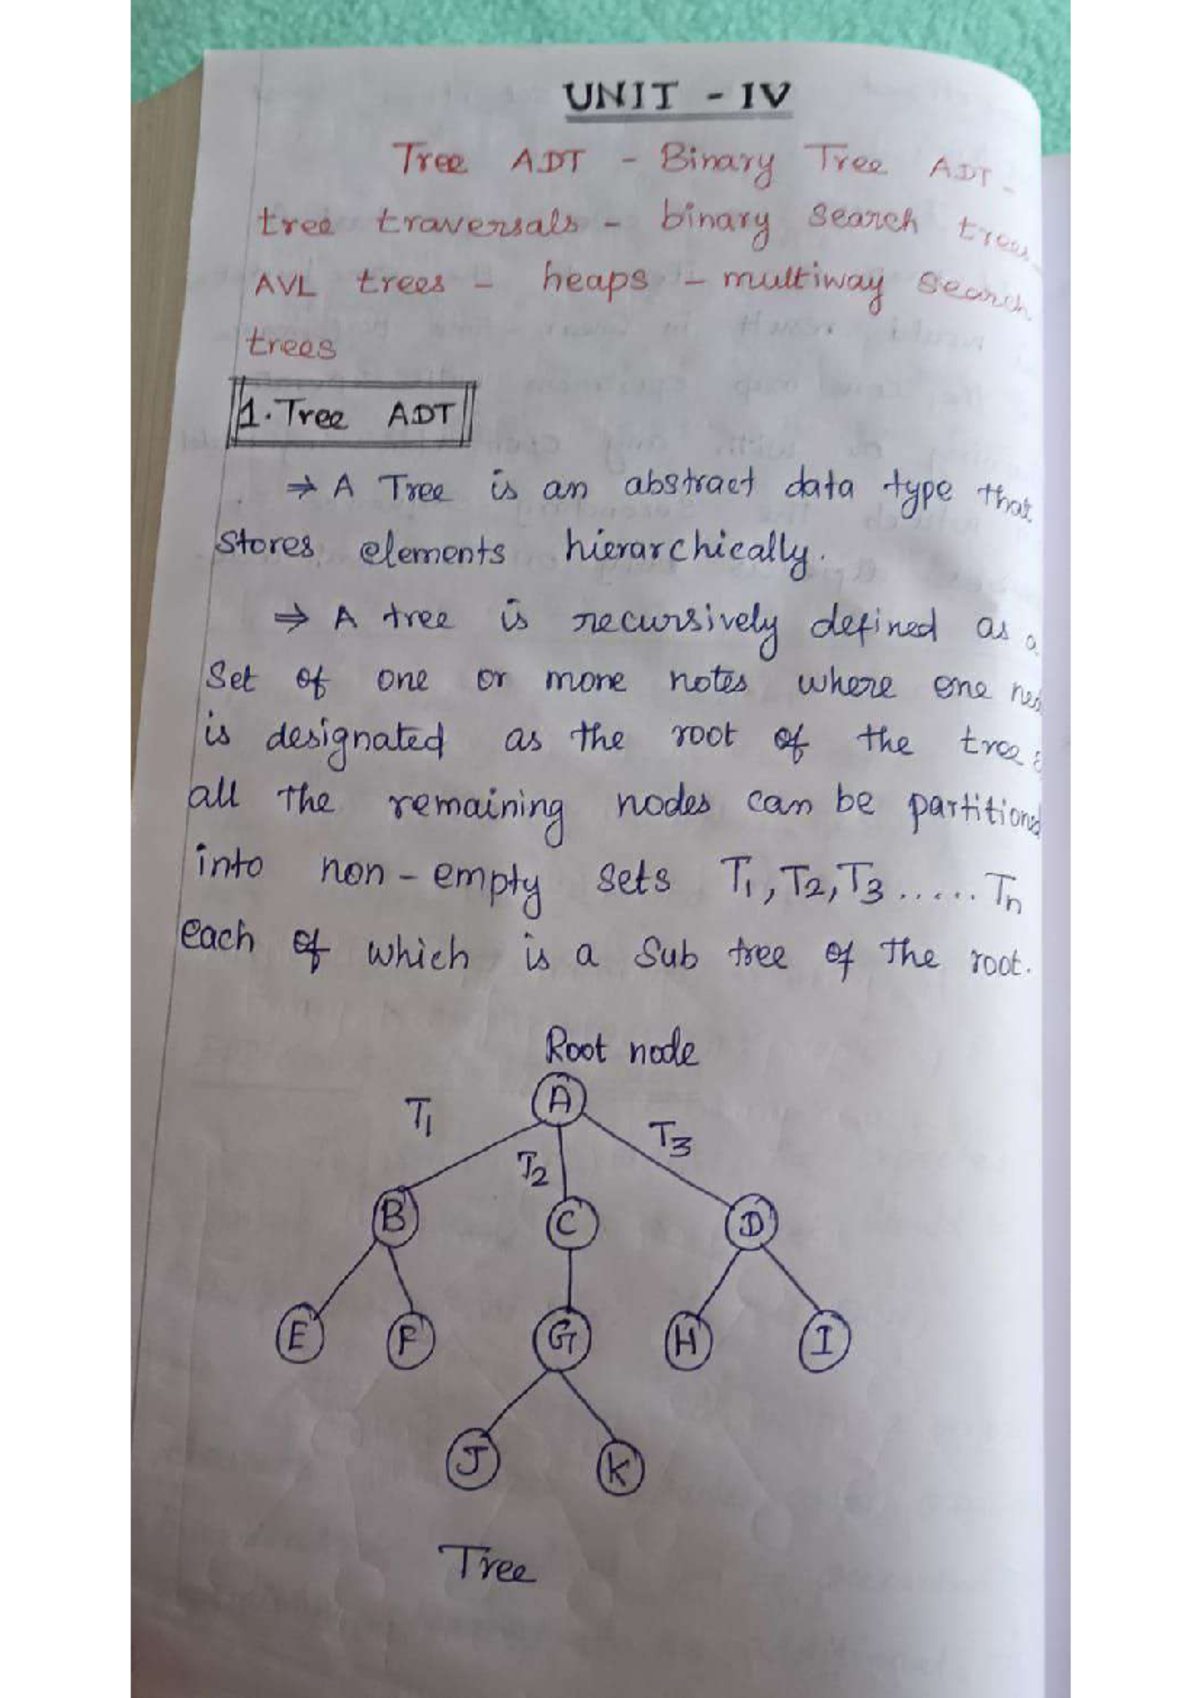 UNIT - IV
Tree ADT - Binary Tree ADT -
tree traversals - binary search trees -
AVL trees - heaps - multiway search
trees
1. Tree ADT
⇒ A Tree is an abstract data type that
stores elements hierarchically.
⇒ A tree is recursively defined as a
Set of one or more notes where one
is designated as the root of the tree
all the remaining nodes can be partitioned
into non-empty sets T1, T2, T3 ..... Tn
each of which is a Sub tree of the root.
Root node
A
T1 T2 T3
B C D
E F G H I
J K
Tree